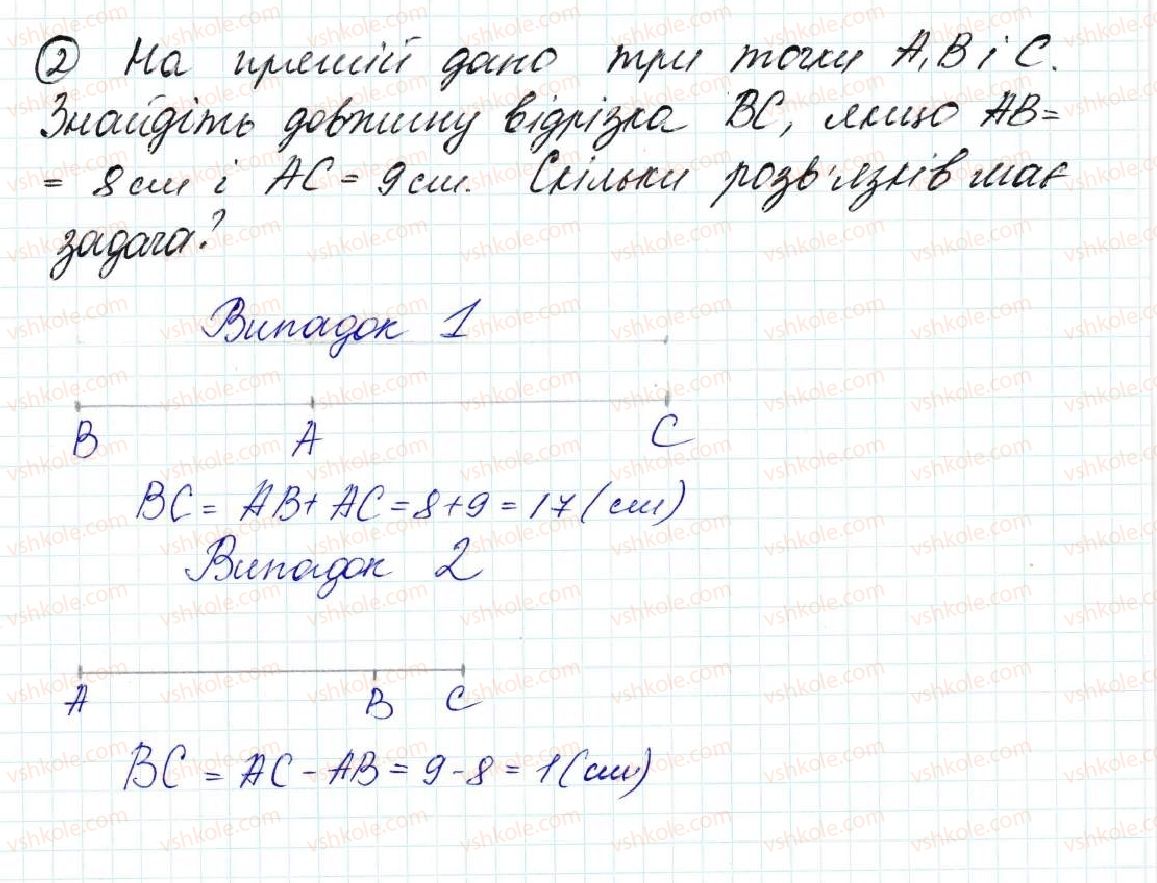 ② На прямій дано три точки A, B і C.
Знайдіть довжину відрізка BC, якщо AB=
= 8 см і AC = 9 см. Скільки розв'язків має
задача?
Випадок 1
B A C
BC = AB + AC = 8 + 9 = 17 (см)
Випадок 2
A B C
BC = AC - AB = 9 - 8 = 1 (см)
vshkole.com